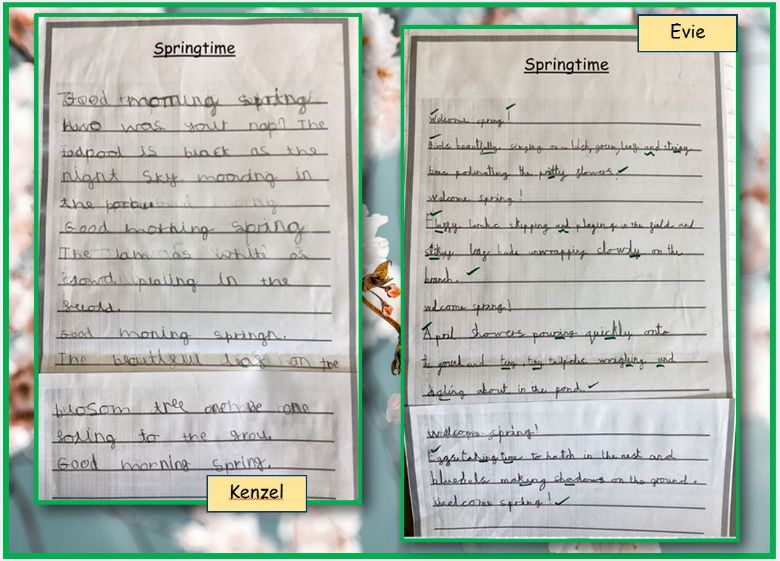 Springtime
Good morning spring!
how was your nap? The
tadpool is black as the
night sky mooving in
the
Good morning spring
The lam as whiti as
in the
Good moning springn.
The beautiful leag on the
blosom tree one
to the grou.
Good morning spring.
Kenzel
Evie
Springtime
Welcome spring!
Birds beautifully singing on a lush, green, leag and stripy
bees pollinating the pretty flowers.
Welcome spring!
Fluffy lambs skipping and playing in the field and
leag buds unwrapping slowly on the
branch.
welcome spring!
April showers pouring quickly onto
the ground and tiny, tiny tadpoles wriggling and
about in the pond.
Welcome spring!
Eggs taking time to hatch in the nest and
bluebells making shadows on the ground.
Welcome spring!